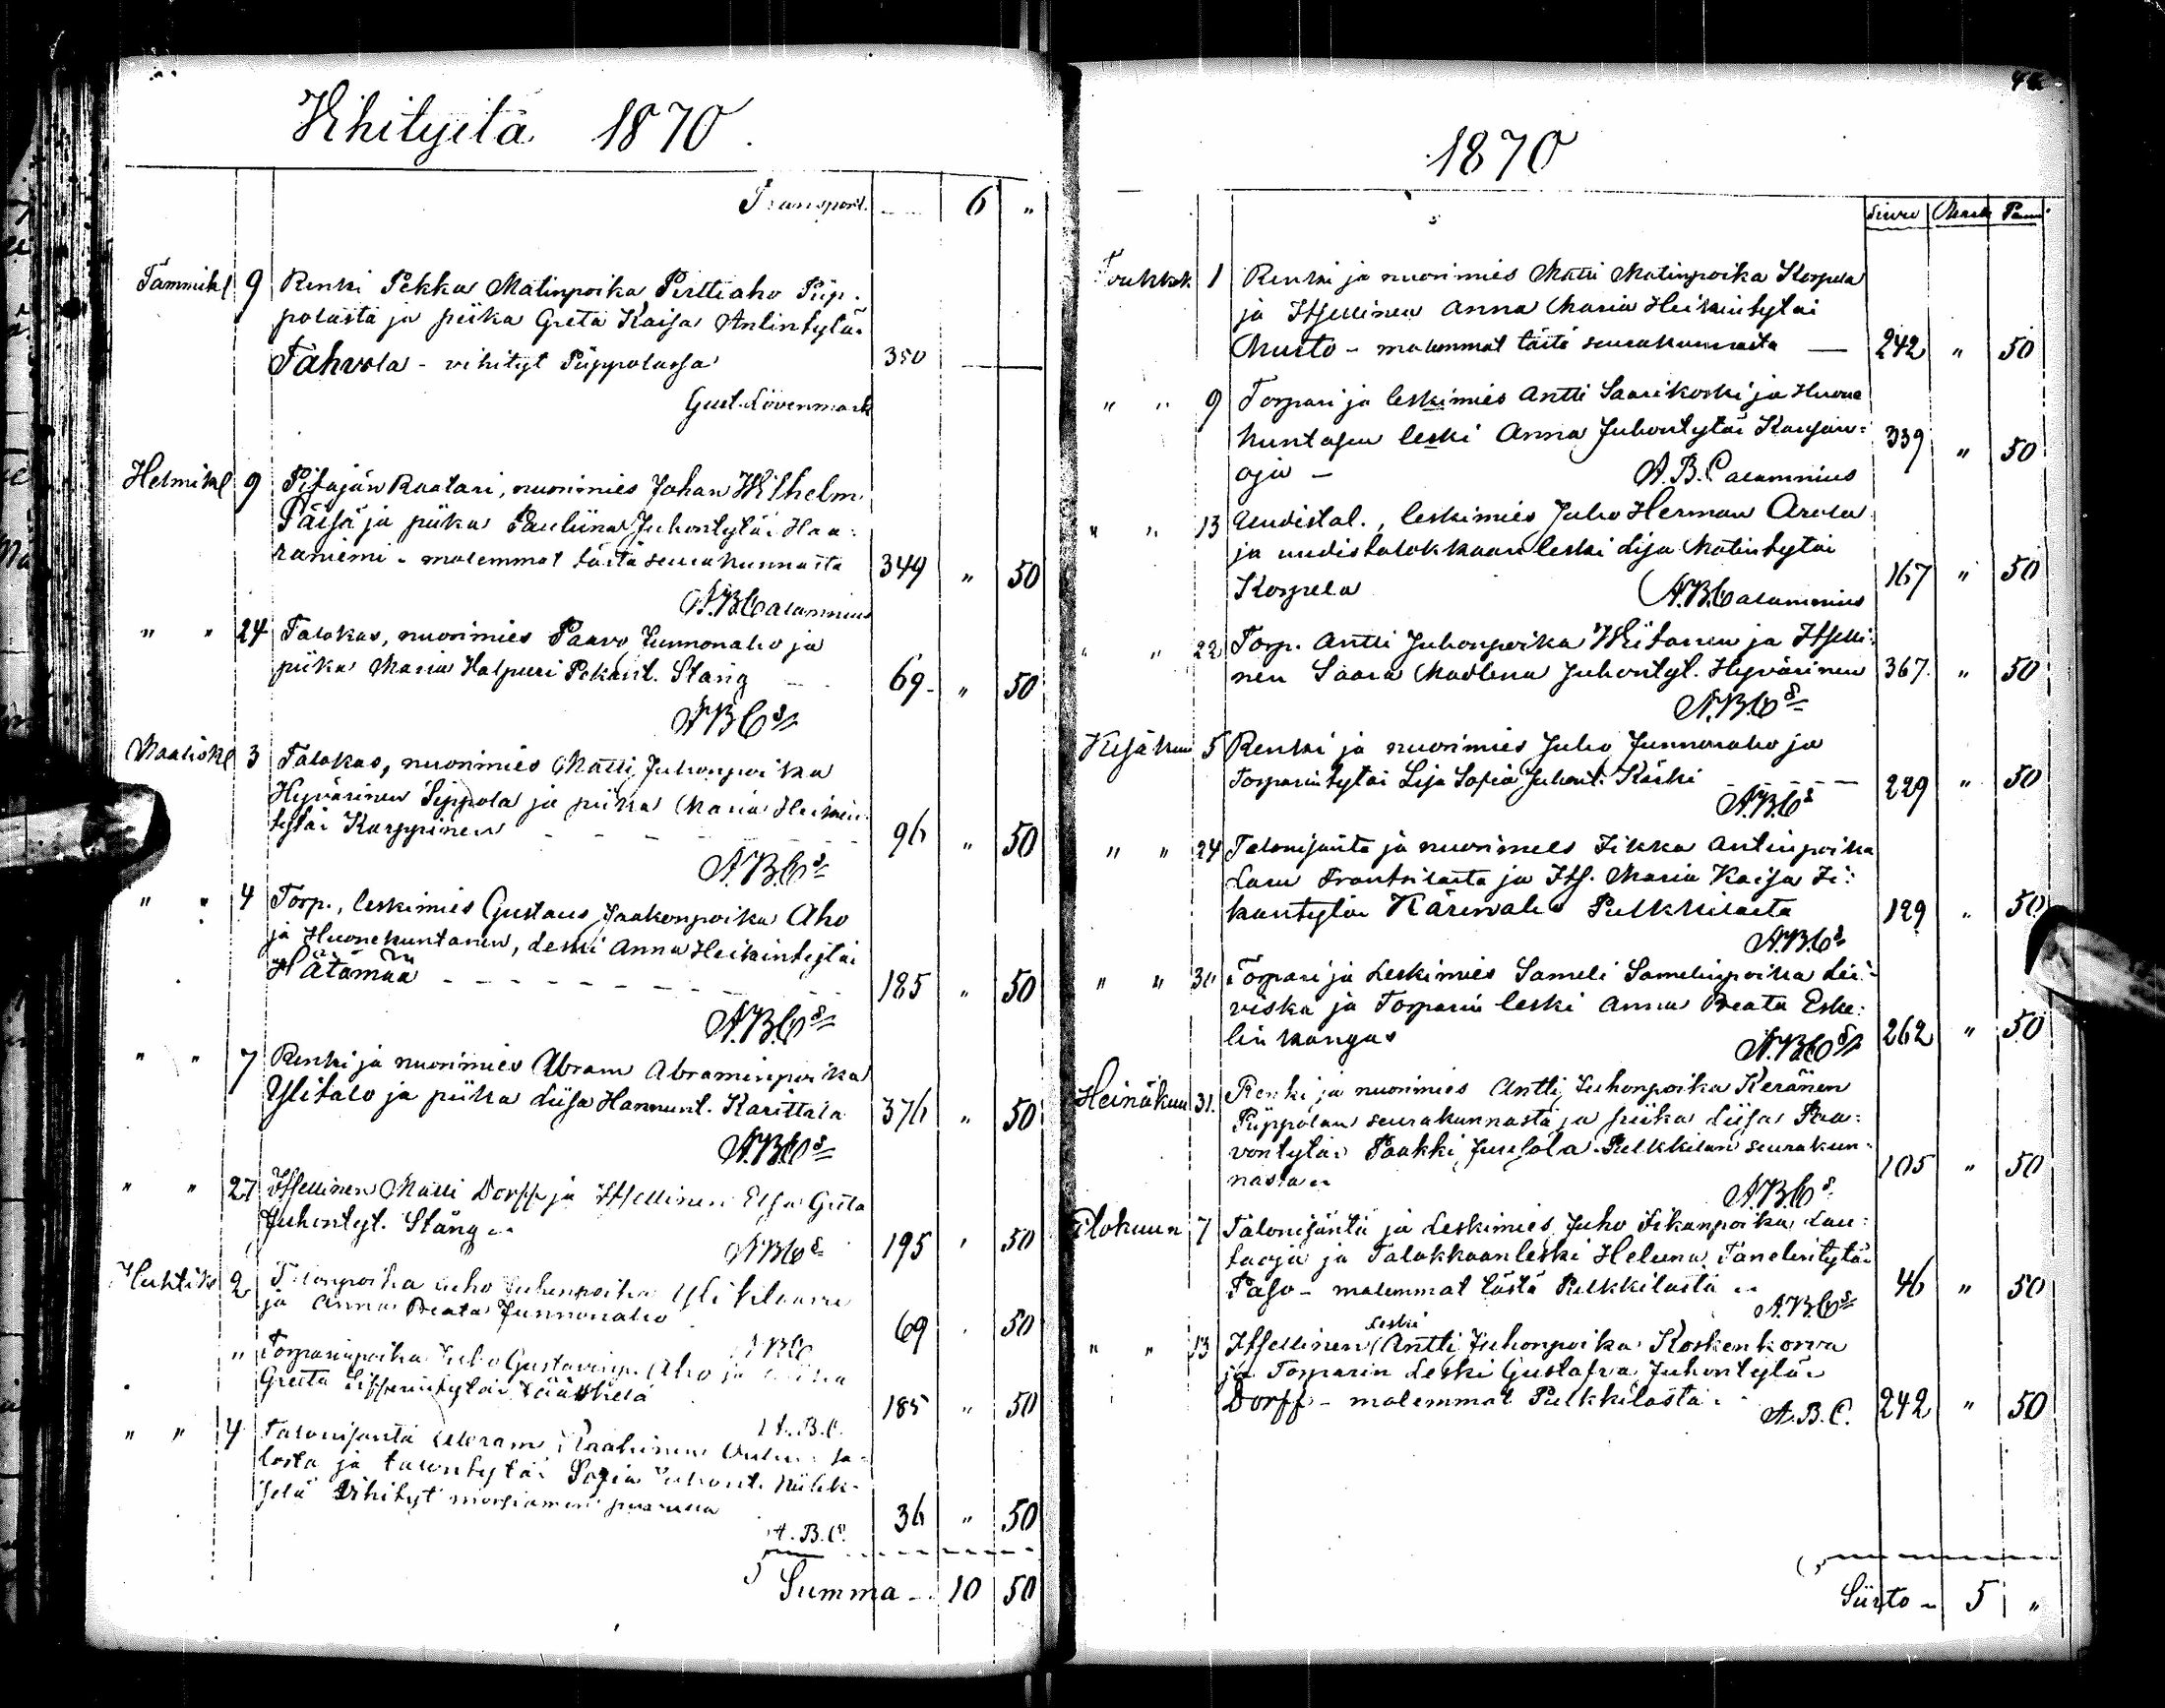 Wihityitä 1870.
Transport. 6 "
Tammikl 9 Renki Pekka Matinpoika Perttiaho Piip-
polasta ja piika Greta Kaisa Antintytär
Tahvola - vihityt Piippolassa 350
Gust. Lövenmark
Helmikl 9 Pitäjän Raatari, nuorimies Johan Wilhelm
Päisä ja piika Pauliina Juhontytär Haa-
raniemi - molemmat tästä seurakunnasta 349 " 50
A.B. Calamnius
" " 24 Talokas, nuorimies Paavo Junnonaho ja
piika Maria Halpuri Pekant. Stång 69 - " 50
A.B.C-s
Maaliskl 3 Talokas, nuorimies Matti Juhonpoika
Hyvärinen Sippola ja piika Maria Heikin-
tytär Karppinen 96 " 50
A.B.C-s
" " 4 Torp., leskimies Gustaus Jaakonpoika Aho
ja Huonekuntanen, Leski Anna Heikintytär
Hätämaa 185 " 50
A.B.C-s
" " 7 Renki ja nuorimies Abram Abraminpoika
Ylitalo ja piika Liisa Hannunt. Karittala 376 " 50
A.B.C-s
" " 27 Itsellinen Matti Dorff ja Itsellinen Elsa Greta
Juhontyt. Stång 195 " 50
A.B.C-s
Huhtik 2 Juho Juhonpoika
ja Anna Beata Junnonaho 69 . 50
A.B.C
" Torparinpoika Juho Gustavinp. Aho ja piika
Greeta 185 " 50
A.B.C.
" " 4 Talonisäntä Abram Raahinen
losta ja talontytär Sofia Juhont.
selä Vihityt morsiamen 36 " 50
A.B.C.
Summa - 10 50
1870
Sivu Mark Penni
Toukok 1 Renki ja nuorimies Matti Matinpoika Korpela
ja Itsellinen Anna Maria Heikintytär
Musto - molemmat tästä seurakunnasta — 242 " 50
" " 9 Torpari ja leskimies Antti Saarikoski ja Huone
kuntasen leski Anna Juhontytär Kanjan-
oja - 339 " 50
A.B. Calamnius
" " 13 Uudistal., leskimies Juho Herman Arola
ja uudistalokkaan leski Lisa Matintytär
Korpela 167 " 50
A.B. Calamnius
" " 22 Torp. Antti Juhonpoika Wiitanen ja Itselli-
nen Saara Madlena Juhontyt. Hyvärinen 367. " 50
A.B.C-s
Kesäkuu 5 Renki ja nuorimies Juho Junnonaho ja
Torparintytär Lisa Sofia Juhont. Käski 229 " 50
A.B.C-s
" " 24 Talonisäntä ja nuorimies Iikka Antinpoika
Laru Frantsilasta ja Its. Maria Kaisa Ii-
kantytär Kärenaho Pulkkilasta 129 " 50
A.B.C-s
" " 30 Torpari ja Leskimies Sameli Samelinpoika Lii-
viska ja Torparin leski Anna Beata Eske-
lin kangas 262 " 50
A.B.C-s
Heinäkuu 31. Renki ja nuorimies Antti Juhonpoika Keränen
Piippolan seurakunnasta ja piika Liisa Paa-
vontytär Paakki Jussola Pulkkilan seurakun-
nasta 105 " 50
A.B.C-s
Elokuun 7 Talonisäntä ja Leskimies Juho Iikanpoika Lau-
taoja ja Talokkaan leski Helena Tanelintytär
Paso - molemmat tästä Pulkkilasta 46 " 50
A.B.C-s
leski
" " 13 Itsellinen Antti Juhonpoika Koskenkorva
ja Torparin Leski Gustafva Juhontytär
Dorff - molemmat Pulkkilasta 242 " 50
A.B.C.
Siirto - 5 "